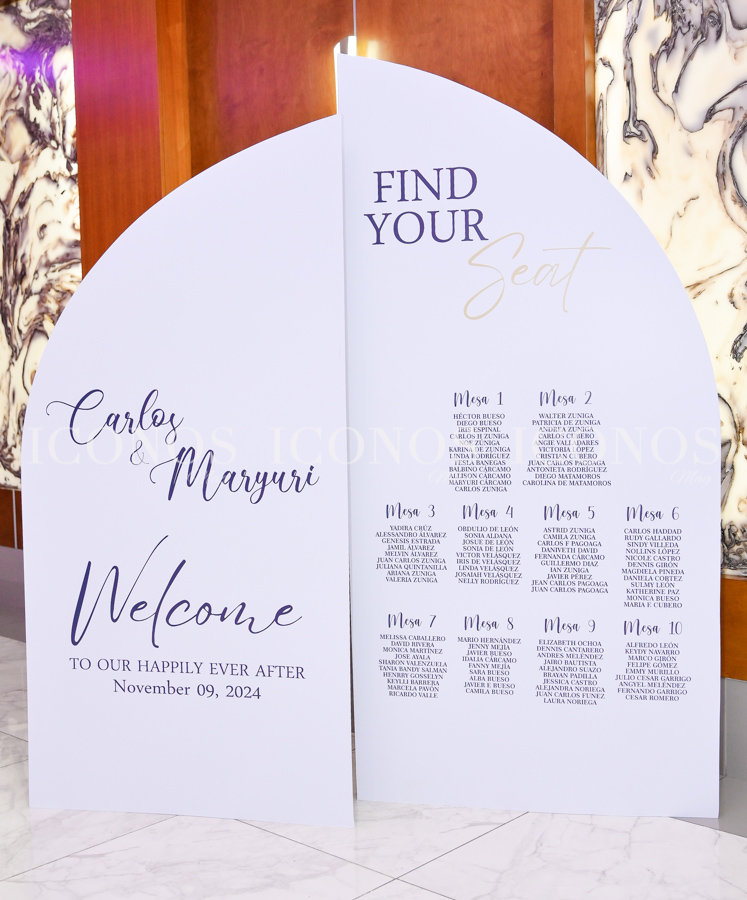 FIND
YOUR
Seat
Carlos
&
Maryuri
Welcome
TO OUR HAPPILY EVER AFTER
November 09, 2024
Mesa 1
HÉCTOR BUESO
DIEGO BUESO
IRIS ESPINAL
CARLOS H ZUNIGA
NOE ZUNIGA
KARINA DE ZUNIGA
LINDA RODRÍGUEZ
TESLA BANEGAS
BALBINO CÁRCAMO
ALLISON CÁRCAMO
MARYURI CÁRCAMO
CARLOS ZUNIGA
Mesa 2
WALTER ZUNIGA
PATRICIA DE ZUNIGA
ANDREA ZUNIGA
CARLOS CUBERO
ANGIE VALLADARES
VICTORIA LÓPEZ
CRISTIAN CUBERO
JUAN CARLOS PAGOAGA
ANTONIETA RODRÍGUEZ
DIEGO MATAMOROS
CAROLINA DE MATAMOROS
Mesa 3
YADIRA CRÚZ
ALESSANDRO ÁLVAREZ
GENESIS ESTRADA
JAMIL ÁLVAREZ
MELVIN ÁLVAREZ
JUAN CARLOS ZUNIGA
JULIANA QUINTANILLA
ARIANA ZUNIGA
VALERIA ZUNIGA
Mesa 4
OBDULIO DE LEÓN
SONIA ALDANA
JOSUE DE LEÓN
SONIA DE LEÓN
VICTOR VELÁSQUEZ
IRIS DE VELÁSQUEZ
LINDA VELÁSQUEZ
JOSAIAH VELÁSQUEZ
NELLY RODRÍGUEZ
Mesa 5
ASTRID ZUNIGA
CAMILA ZUNIGA
CARLOS F PAGOAGA
DANIVETH DAVID
FERNANDA CÁRCAMO
GUILLERMO DIAZ
IAN ZUNIGA
JAVIER PÉREZ
JEAN CARLOS PAGOAGA
JUAN CARLOS PAGOAGA
Mesa 6
CARLOS HADDAD
RUDY GALLARDO
SINDY VILLEDA
NOLLINS LÓPEZ
NICOLE CASTRO
DENNIS GIRÓN
MAGDIELA PINEDA
DANIELA CORTEZ
SULMY LEÓN
KATHERINE PAZ
MONICA BUESO
MARIA F. CUBERO
Mesa 7
MELISSA CABALLERO
DAVID RIVERA
MONICA MARTÍNEZ
JOSE AYALA
SHARON VALENZUELA
TANIA BANDY SALMAN
HENRRY GOSSELYN
KEYLLI BARRERA
MARCELA PAVÓN
RICARDO VALLE
Mesa 8
MARIO HERNÁNDEZ
JENNY MEJÍA
JAVIER BUESO
IDALIA CÁRCAMO
FANNY MEJÍA
SARA BUESO
ALBA BUESO
JAVIER E BUESO
CAMILA BUESO
Mesa 9
ELIZABETH OCHOA
DENNIS CANTARERO
ANDRES MELÉNDEZ
JAIRO BAUTISTA
ALEJANDRO SUAZO
BRAYAN PADILLA
JESSICA CASTRO
ALEJANDRA NORIEGA
JUAN CARLOS FUNEZ
LAURA NORIEGA
Mesa 10
ALFREDO LEÓN
KEYDY NAVARRO
MARCO GIRÓN
FELIPE GÓMEZ
EMMY MURILLO
JULIO CESAR GARRIGO
ANGYEL MELÉNDEZ
FERNANDO GARRIGO
CESAR ROMERO
ICONOS ICONOS ICONOS